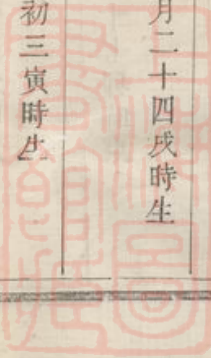 月二十四戌時生
初三寅時生